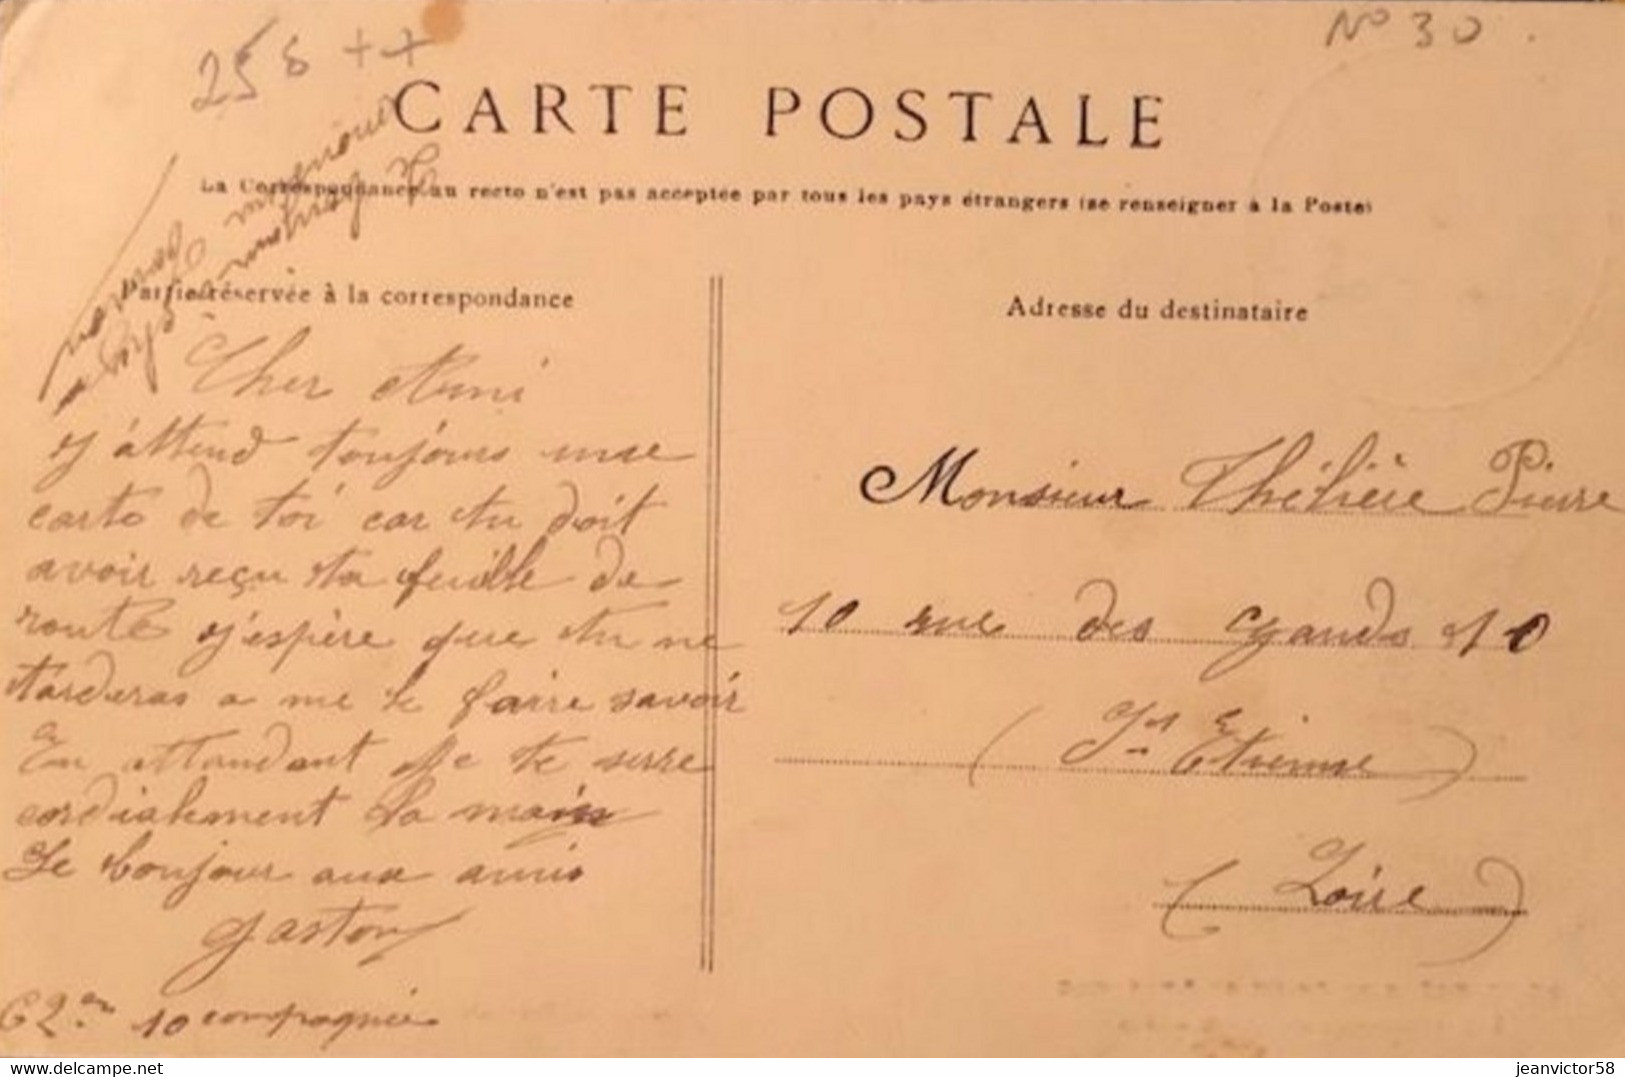 258 ++
N° 30
CARTE POSTALE
La Correspondance au recto n'est pas acceptée par tous les pays étrangers (se renseigner à la Poste)
Partie réservée à la correspondance
Cher Ami
j'attend toujours une
carte de toi car tu doit
avoir reçu ta feuille de
route j'espère que tu ne
tarderas a me le faire savoir
En attendant Je te serre
cordialement la main
Le bonjour aux amis
Gaston
62em 10 compagnie
Adresse du destinataire
Monsieur Thélière Pierre
10 rue des Gauds 10
(St Etienne)
(Loire)
delcampe.net
jeanvictor58